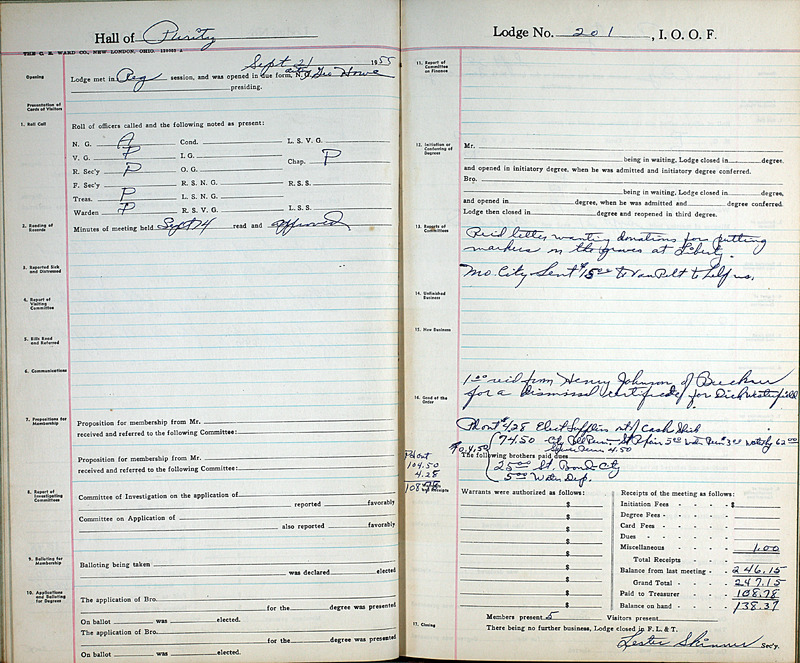 Hall of Purity
THE C. E. WARD CO., NEW LONDON, OHIO.
Sept 21 1955
Opening
Lodge met in Reg session, and was opened in due form, N. G. Geo Howe
presiding.
Presentation of Cards of Visitors
1. Roll Call
Roll of officers called and the following noted as present:
N. G. A Cond. L. S. V. G.
V. G. P I. G. Chap. P
R. Sec'y P O. G.
F. Sec'y R. S. N. G. R. S. S.
Treas. P L. S. N. G.
Warden P R. S. V. G. L. S. S.
2. Reading of Records
Minutes of meeting held Sept 14 read and approved
3. Reported Sick and Distressed
4. Report of Visiting Committee
5. Bills Read and Referred
6. Communications
7. Propositions for Membership
Proposition for membership from Mr.
received and referred to the following Committee:
Proposition for membership from Mr.
received and referred to the following Committee:
8. Report of Investigating Committees
Committee of Investigation on the application of
reported favorably
Committee on Application of
also reported favorably
9. Balloting for Membership
Balloting being taken
was declared elected
10. Applications and Balloting for Degrees
The application of Bro.
for the degree was presented
On ballot was elected.
The application of Bro.
for the degree was presented
On ballot was elected.
Lodge No. 201, I. O. O. F.
11. Report of Committee on Finance
12. Initiation or Conferring of Degrees
Mr.
being in waiting, Lodge closed in degree.
and opened in initiatory degree, when he was admitted and initiatory degree conferred.
Bro.
being in waiting, Lodge closed in degree,
and opened in degree, when he was admitted and degree conferred.
Lodge then closed in degree and reopened in third degree.
13. Reports of Committees
Recid letter wanting donations for putting
markers on the graves at Liberty.
Mo. City Sent $15.00 to Van Pelt to help us.
14. Unfinished Business
15. New Business
1.00 recid from Henry Johnson of Buckner
for a dismissal certificate for Dick
16. Good of the Order
Pd out $4.28 Elect Supplies
74.50 City
4.50
104.50
The following brothers paid dues
25.00 St. Bond City
5.00 Water Dep.
Pd out
104.50
4.28
108.78
Receipts
Warrants were authorized as follows:
$
$
$
$
$
$
$
$
$
Receipts of the meeting as follows:
Initiation Fees $
Degree Fees
Card Fees
Dues
Miscellaneous 1.00
Total Receipts
Balance from last meeting 246.15
Grand Total 247.15
Paid to Treasurer 108.78
Balance on hand 138.37
Members present 5 Visitors present
17. Closing
There being no further business, Lodge closed in F. L. & T.
Lester Skinner Sec'y.